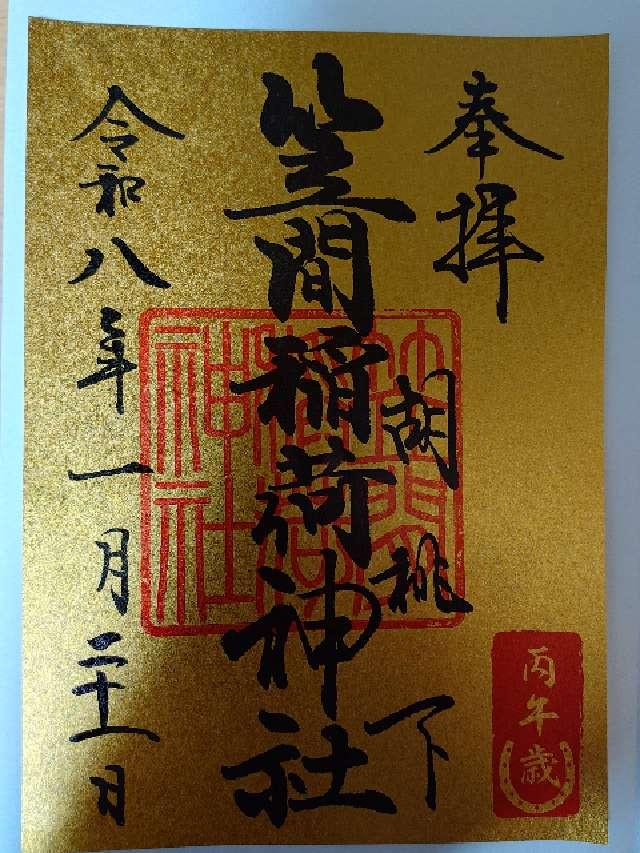 奉拝
胡桃下
笠間稲荷神社
令和八年一月二十一日
笠間稲荷神社
丙午歳